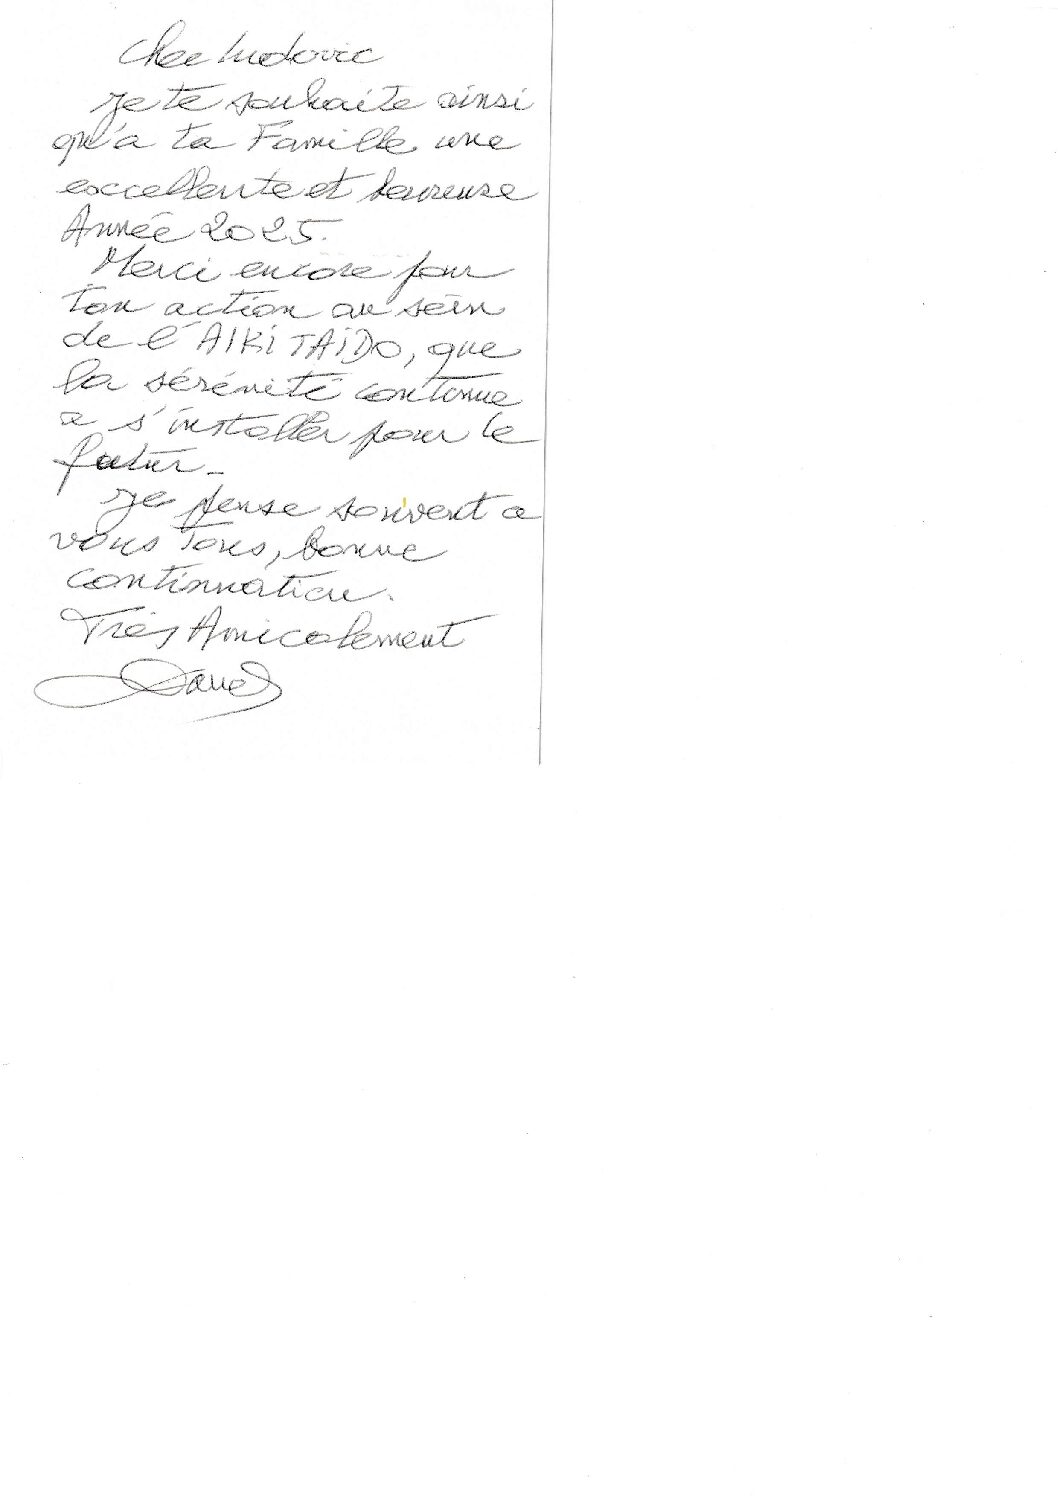 Cher Ludovic
Je te souhaite ainsi
qu'a ta Famille une
excellente et heureuse
Année 2025.
Merci encore pour
ton action au sein
de l'AIKITAIDO, que
la sérénité continue
a s'installer pour le
futur_
Je pense souvent a
vous Tous, bonne
continuation.
Très Amicalement